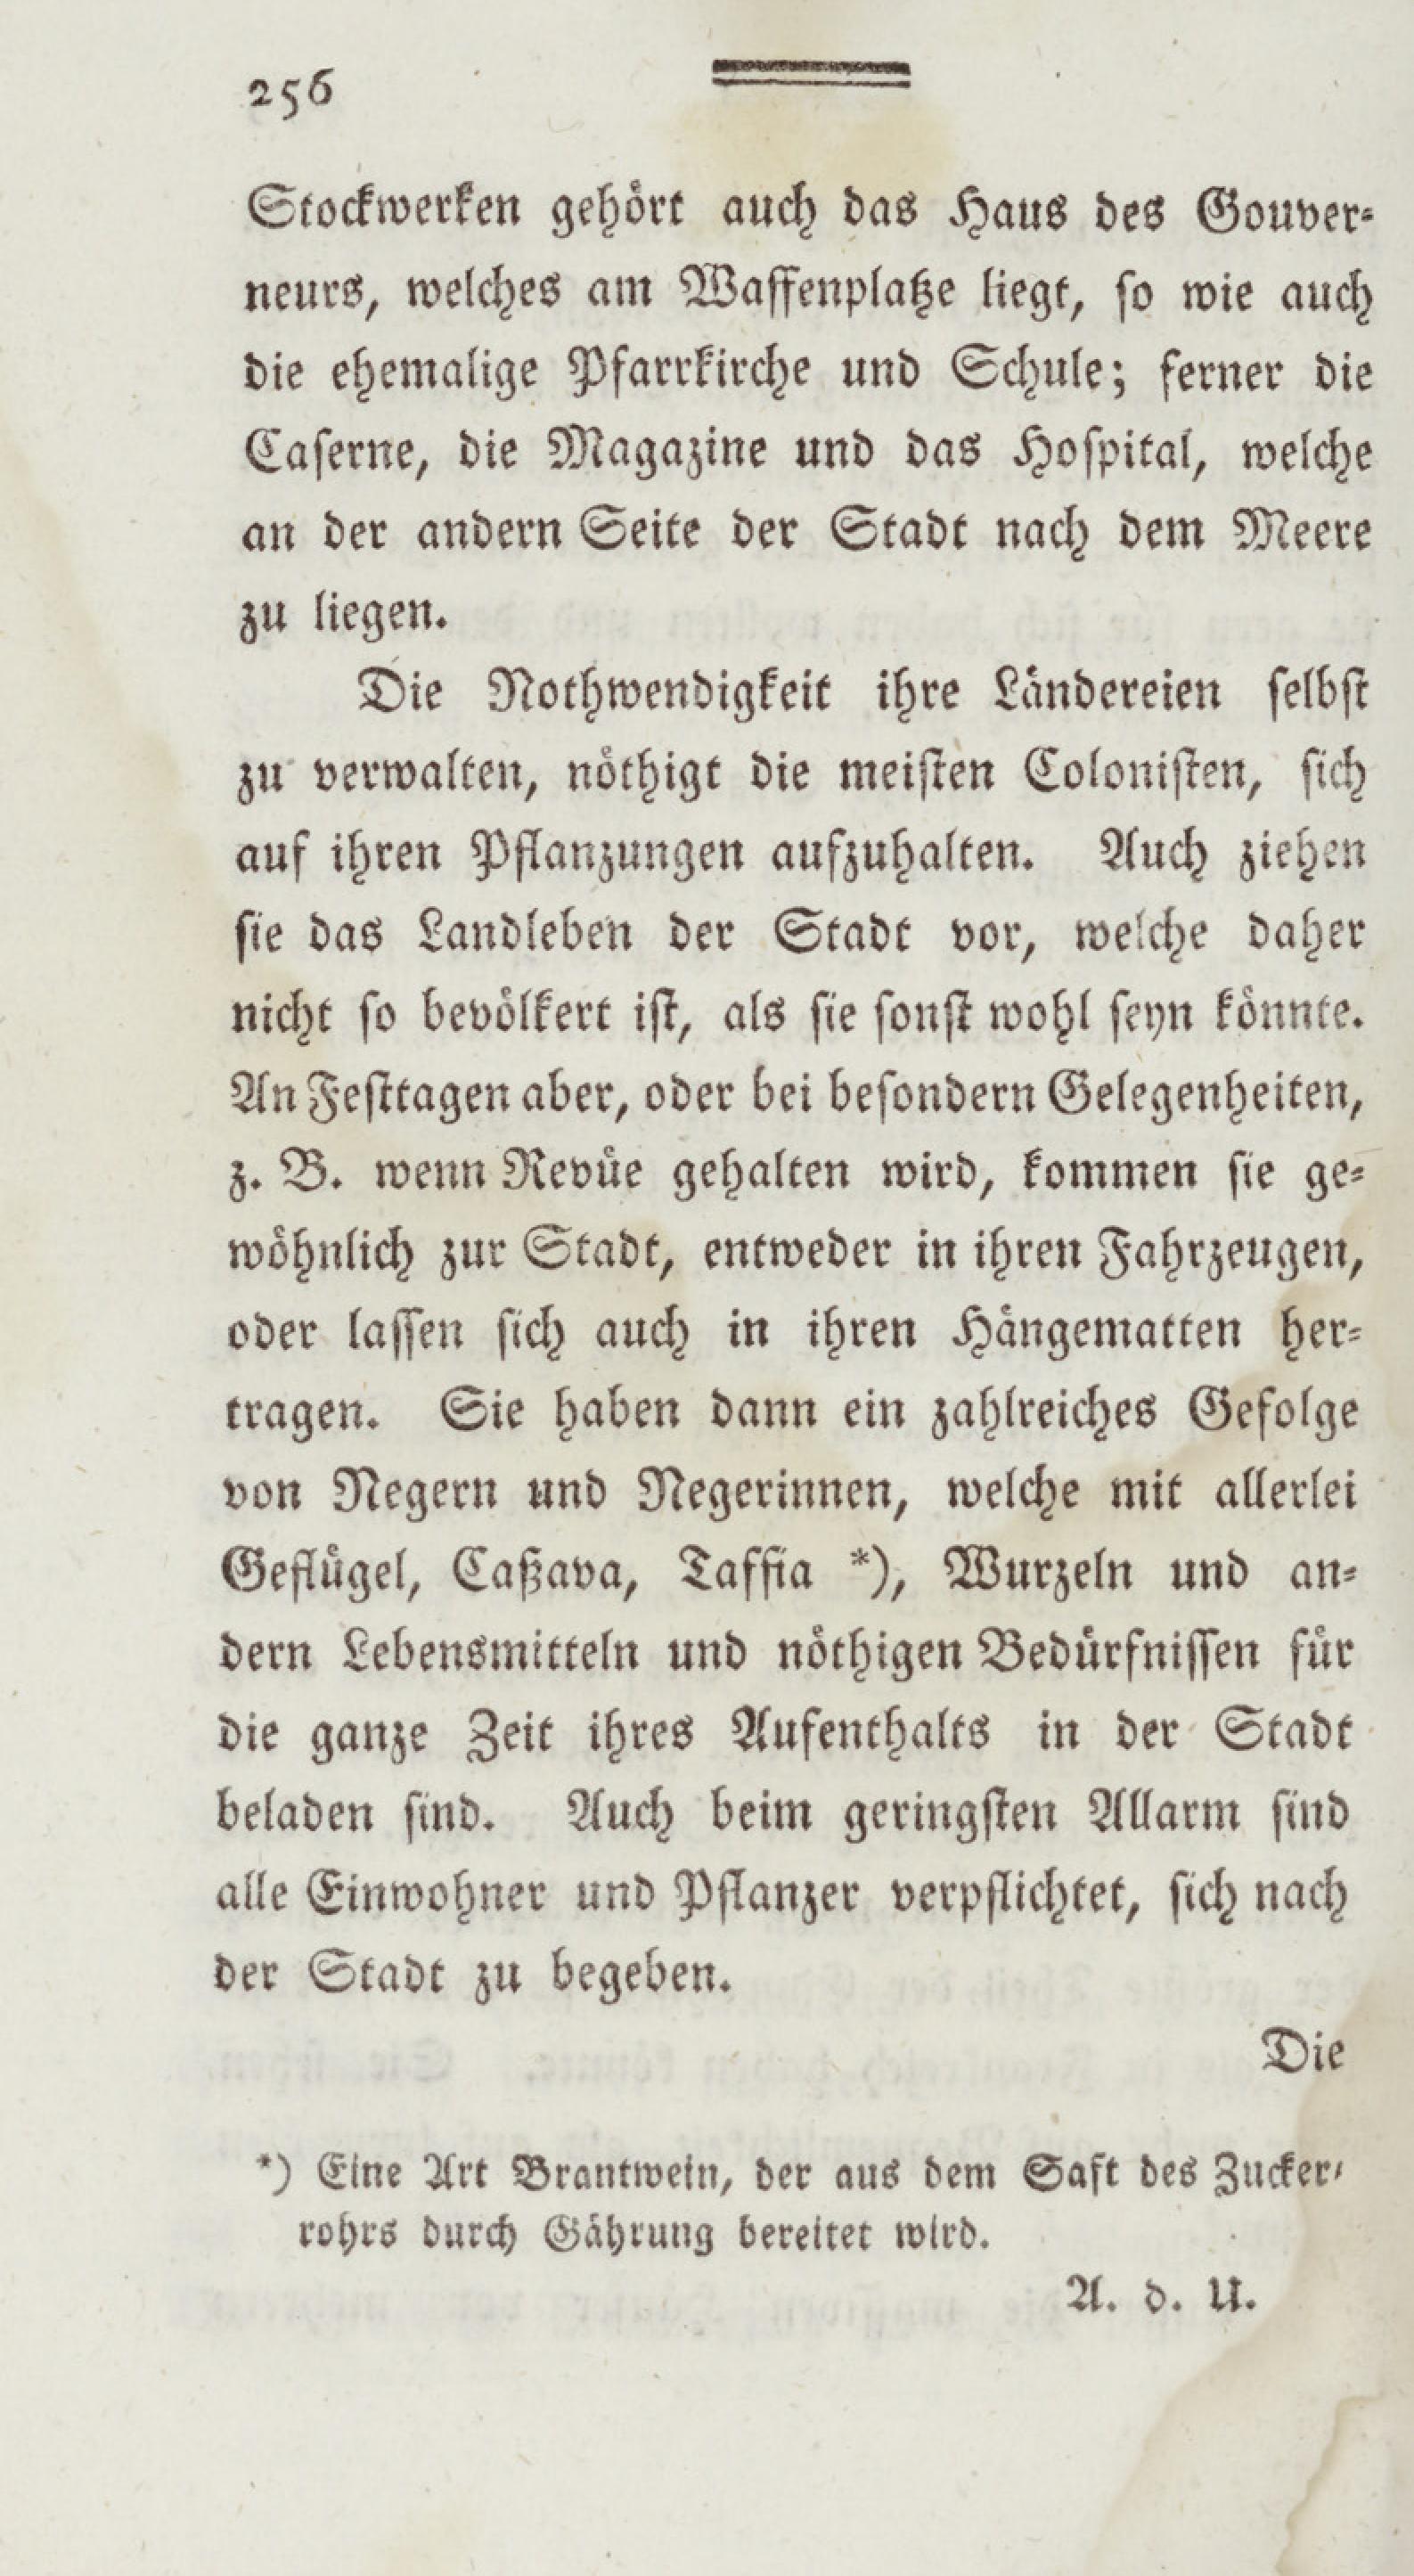 256
Stockwerken gehört auch das Haus des Gouver-
neurs, welches am Waffenplatze liegt, so wie auch
die ehemalige Pfarrkirche und Schule; ferner die
Caserne, die Magazine und das Hospital, welche
an der andern Seite der Stadt nach dem Meere
zu liegen.
Die Nothwendigkeit ihre Ländereien selbst
zu verwalten, nöthigt die meisten Colonisten, sich
auf ihren Pflanzungen aufzuhalten. Auch ziehen
sie das Landleben der Stadt vor, welche daher
nicht so bevölkert ist, als sie sonst wohl seyn könnte.
An Festtagen aber, oder bei besondern Gelegenheiten,
z. B. wenn Revüe gehalten wird, kommen sie ge-
wöhnlich zur Stadt, entweder in ihren Fahrzeugen,
oder lassen sich auch in ihren Hängematten her-
tragen. Sie haben dann ein zahlreiches Gefolge
von Negern und Negerinnen, welche mit allerlei
Geflügel, Caßava, Taffia *), Wurzeln und an-
dern Lebensmitteln und nöthigen Bedürfnissen für
die ganze Zeit ihres Aufenthalts in der Stadt
beladen sind. Auch beim geringsten Allarm sind
alle Einwohner und Pflanzer verpflichtet, sich nach
der Stadt zu begeben.
Die
*) Eine Art Brantwein, der aus dem Saft des Zucker-
rohrs durch Gährung bereitet wird.
A. d. U.